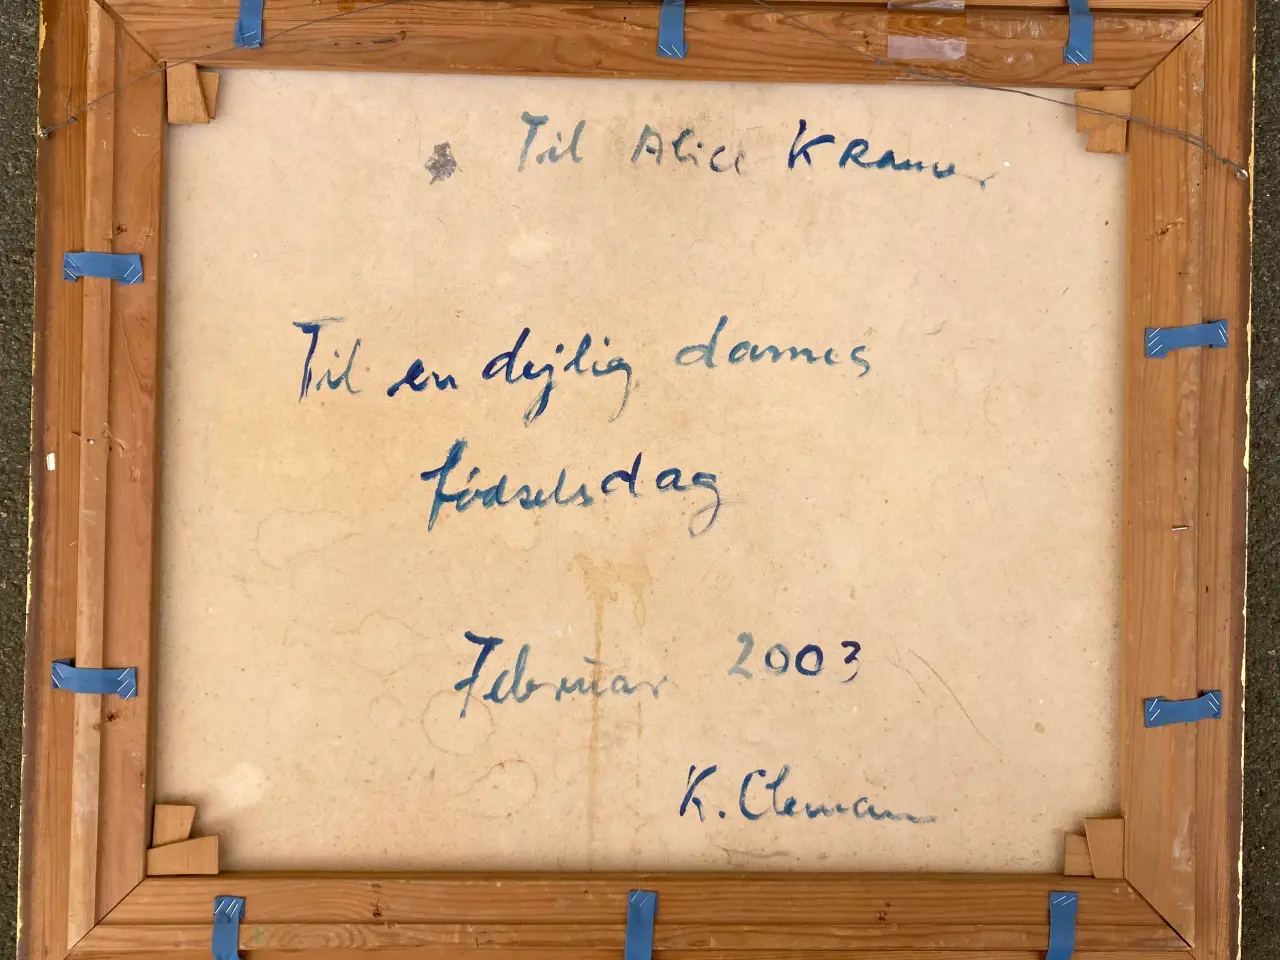 Til Alice Kramer
Til en dejlig dames
fødselsdag
Februar 2003
K. Cleman